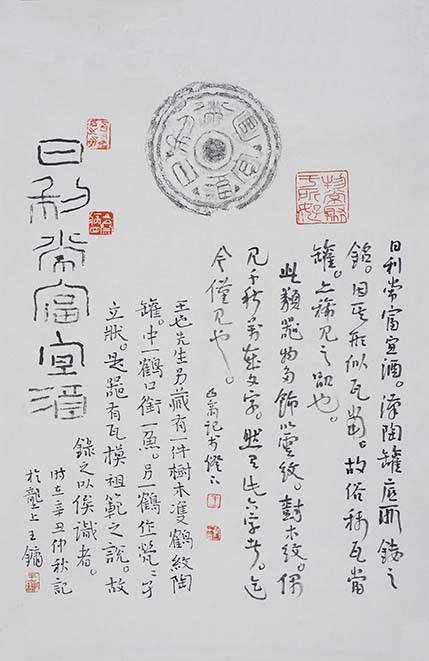 日利常富宜酒
日利常富宜酒。漢陶罐底所鑄之
銘。因其形似瓦當。故俗稱瓦當
罐。上稀見之品也。
此類器物多飾以雲紋。樹木紋。偶
見千秋萬歲文字。然具此六字者。迄
今僅見也。
記於燈下
王也先生另藏有一件樹木雙鶴紋陶
罐。中一鶴口銜一魚。另一鶴作煢煢孑
立狀。是器有瓦模祖範之說。故
錄之以俟識者。
時在辛丑仲秋記
於壟上王鏞
日利常富宜酒